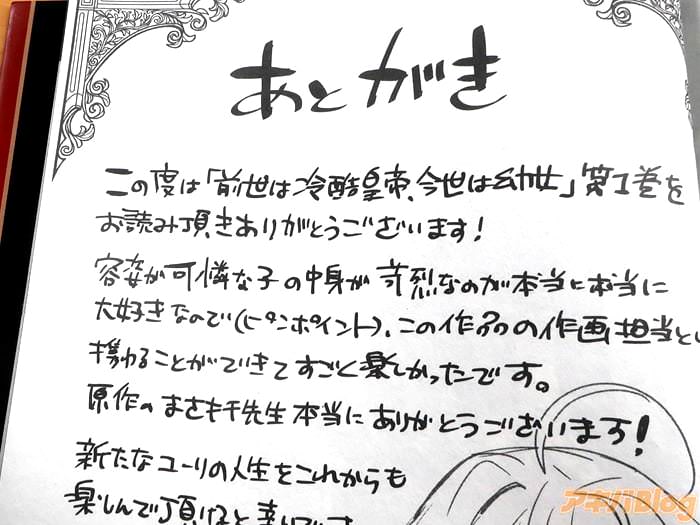 あとがき
この度は「前世は冷酷皇帝、今世は幼女」第1巻を
お読み頂きありがとうございます!
容姿が可憐な子の中身が苛烈なのが本当に本当に
大好きなので(ピンポイント)、この作品の作画担当とし
携わることができてすごく楽しかったです。
原作のまさき千先生本当にありがとうございます!
新たなユーリの人生をこれからも
楽しんで頂けると幸いです
アキバBlog